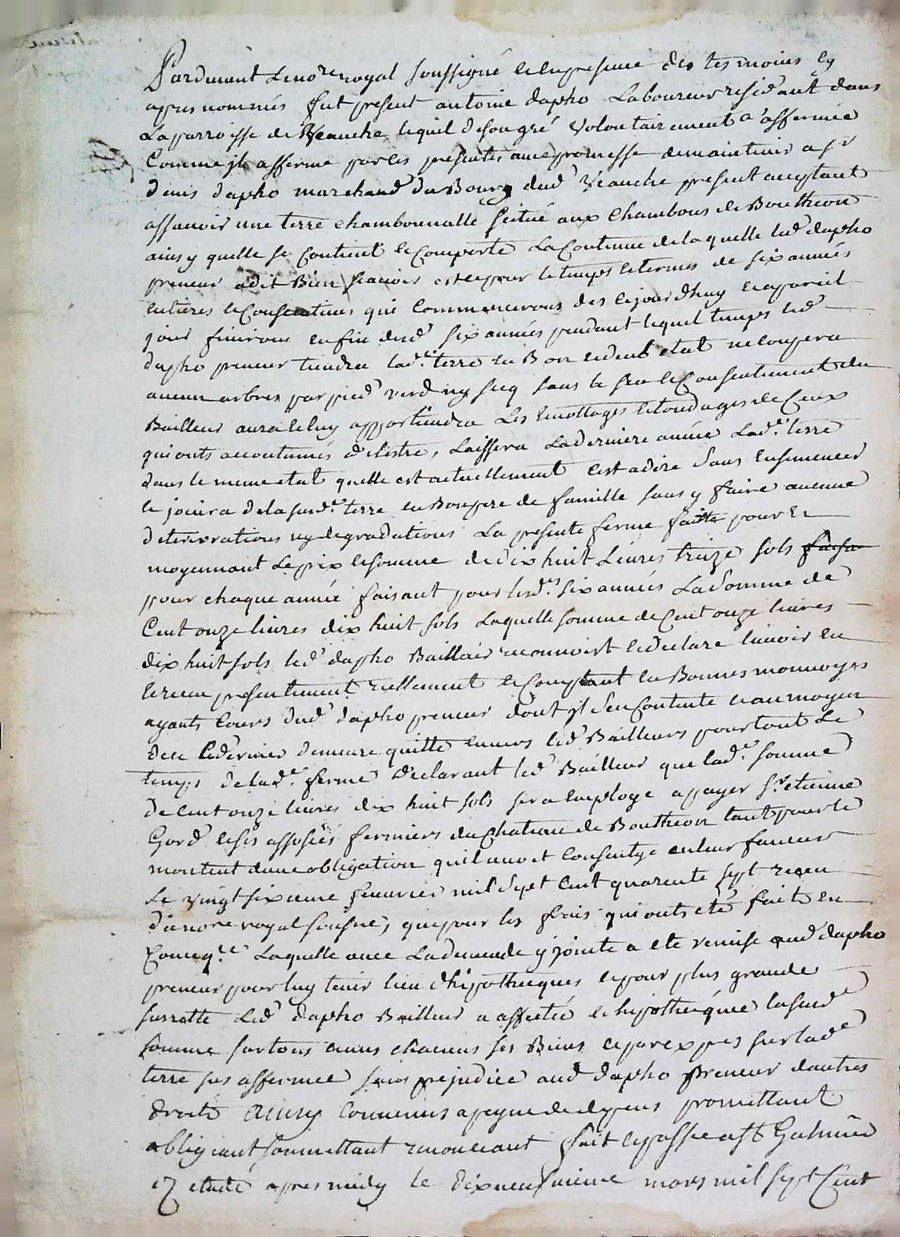 Pardevant Le notre royal soussigné et en presence des tesmoins cy
appres nommés fut present antoine dapho Laboureur residant dans
La parroisse de Veauche lequel de son gré volontairement a affermé
Comme jl afferme par ces presentes avec promesse de maintenir a sr
denis dapho marchand du Bourg dud veauche present acceptant
assavoir une terre chambonnalle scitué aux Chambons de Boutheon
ainsy quelle se Contient et Comporte La Contenue de laquelle led dapho
preneur a dit Bien scavoir et ce pour le temps et termes de six années
entieres et Consecutives qui commenceront des ce jourdhuy et a pareil
jour finiront en fin desd six années pendant lequel temps led
dapho preneur tiendra lad terre en Bon et deub etat ne coupera
aucun arbres par pied verd ny secq sans le sceu et Consentement du
Bailleur aura et luy appartiendra Les emottages et tondages de Ceux
qui onts accoutumés d'estre, Laissera La derniere année Lade terre
dans le meme etat quelle est actuellement cest a dire sans Ensemencer
et jouira de la susde terre en Bon pere de famille sans y faire aucune
deteriorations ny degradations La presente ferme faitte pour et
moyennant Le prix et somme de dix huit Livres treize sols
pour chaque année faisant pour lesd six années La somme de
Cent onze livres dix huit sols Laquelle somme de Cent onze livres
dix huit sols led dapho Bailleur reconnoist et declare lavoir eu
et receu presentement reellement et Comptant en Bonnes monnoyes
ayants Cours dud dapho preneur dont jl s'en Contente et au moyen
de ce ce dernier demeure quitte envers led Bailleurs pour tout Le
temps de lade ferme declarant led Bailleur que lade somme
de Cent onze livres dix huit sols sera employé a payer sr etienne
Gord et ses assosiés fermiers du Chateau de Boutheon tant pour le
montent dune obligation quil avoit Consentye en leur faveur
Le vingt sixieme fevrier mil sept Cent quarente sept receu
notre royal sousné, que pour les frais qui onts été faits en
Conseqce Laquelle avec La demande y jointe a ete remise aud dapho
preneur pour luy tenir lieu d'hipothecques et pour plus grande
surrette Led dapho Bailleur a affectée et hipothéquée lasusd
somme sur tous et uns chacuns ses Biens et par expres sur lad
terre sus affermée sans prejudice aud dapho preneur dautres
droits ainsy Convenus a peyne de depens promettant
obligeant, soumettant renonceant fait et passé a St Galmier
ez etude apres midy le dixneufvieme mars mil sept Cent